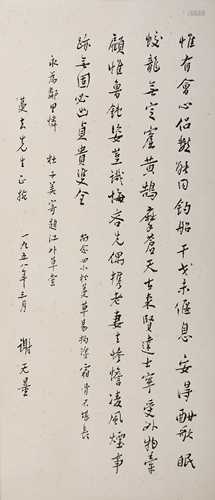 惟有會心侶數能同釣船干戈未偃息安得酣歌眠
蛟龍无定窟黃鵠摩蒼天古來賢達士寧受外物牽
顧惟魯鈍姿豈識悔吝先偶攜老妻去慘憺凌風煙事
跡無固必幽貞貴雙全 尚念四小松蔓草易拘纏霜骨不堪長
永為鄰里憐 杜子美寄題江外草堂
先生正
一九五八年三月 謝无量